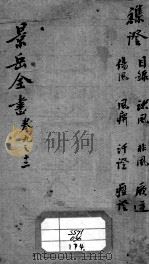 雜證
目錄 諸風 非風 厥逆
傷風 風痹 汗證 痙證
景岳全書 卷九之十三
174